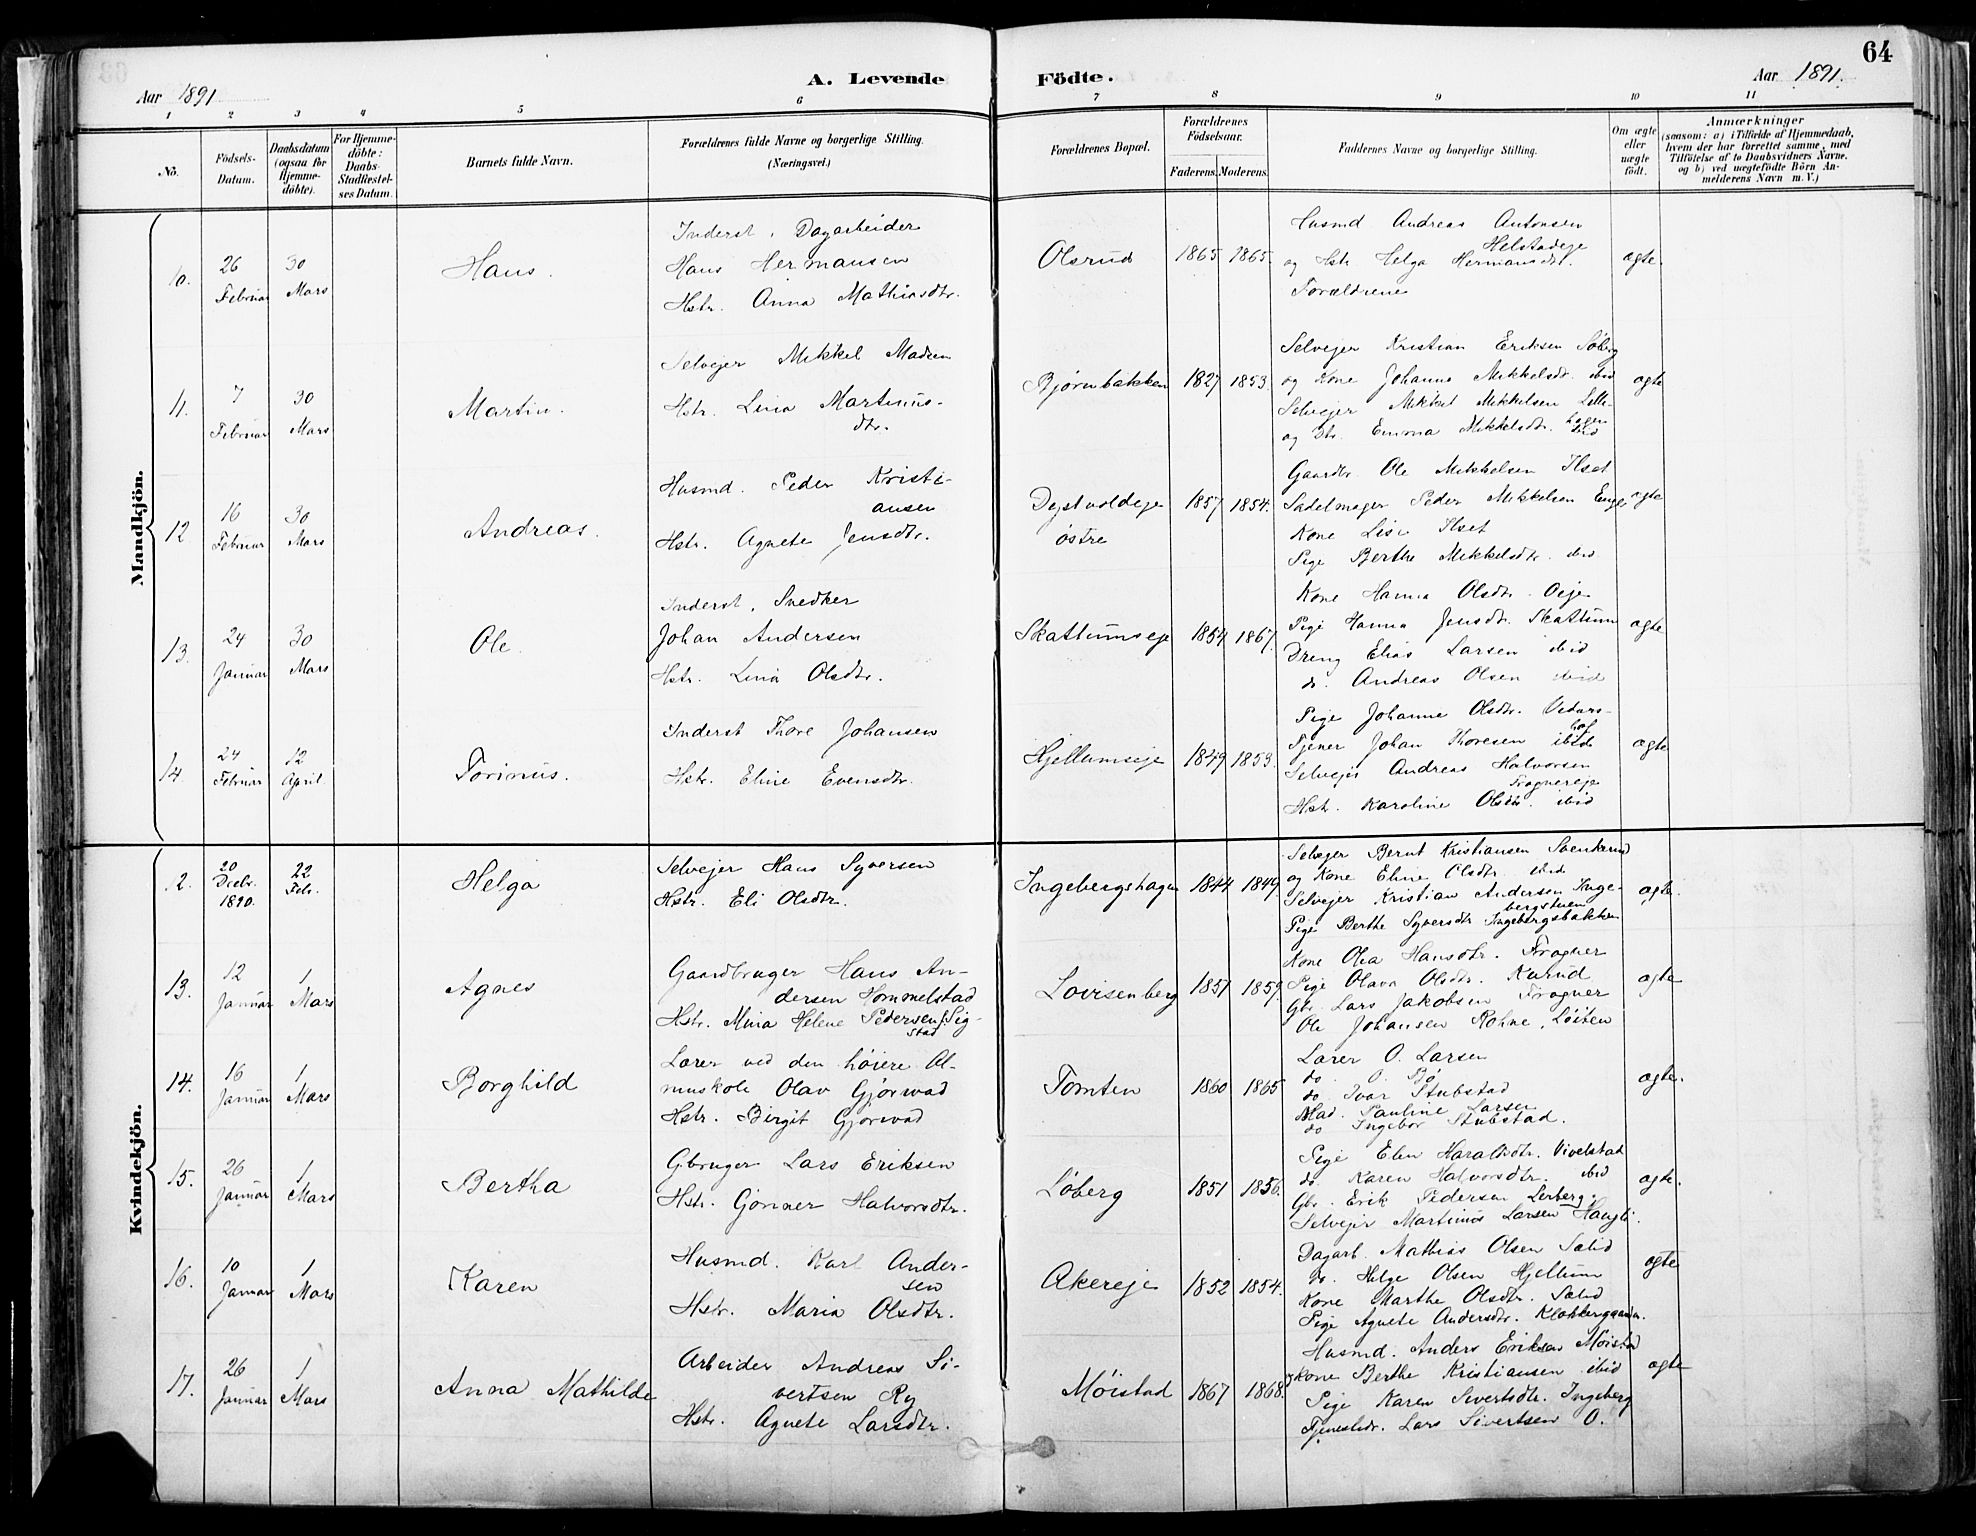 64
Aar 1891
A. Levende Födte.
Aar 1891.
1 2 3 4 5 6 7 8 9 10 11
No.
Födsels-Datum.
Daabsdatum (ogsaa for Hjemme-döbte).
For Hjemme-döbte: Daabs Stadfæstel-ses Datum.
Barnets fulde Navn.
Forældrenes fulde Navne og borgerlige Stilling.
(Næringsvei.)
Forældrenes Bopæl.
Forældrenes Födselsaar.
Faderens. Moderens.
Faddernes Navne og borgerlige Stilling.
Om ægte eller uægte födt.
Anmærkninger
(saasom: a) i Tilfælde af Hjemmedaab,
hvem der har forrettet samme, med
Tilföielse af to Daabsvidners Navne,
og b) ved uægtefödte Börn An-
melderens Navn m. V.)
Mandkjön.
10. 26 Februar 30 Mars Hans.
Inderst, Dagarbeider
Hans Hermansen
Hstr. Anna Mathiasdtr.
Olsrud 1865 1865.
Husmd Andreas Antonsen
Helstadeje
og Hstr Helga Hermansdtr.
Forældrene
ægte.
11. 7 Februar 30 Mars Martin.
Selvejer Mikkel Madsen
Hstr. Lina Martinus-
dtr.
Bjørnbakken 1827 1853
Selvejer Kristian Eriksen Løberg
og Kone Johanne Mikkelsdtr. ibid
Selvejer Mikkel Mikkelsen Lille-
hagen
og Dtr. Emma Mikkelsdtr. ibid
ægte
12 16 Februar 30 Mars Andreas.
Husmd. Peder Kristi-
ansen
Hstr. Agnete Jensdtr.
Dystvoldeje østre 1857 1854.
Gaardbr. Ole Mikkelsen Ilset
Sadelmager Peder Mikkelsen Enger
Kone Lise Ilset
Pige Berthe Mikkelsdtr. ibid
ægte
13. 24 Januar 30 Mars Ole.
Inderst, Snedker
Johan Andersen
Hstr. Lina Olsdtr.
Skattumseje 1854 1867.
Kone Hanna Olsdtr. Oeje
Pige Hanna Jensdtr. Skattum
Dreng Elias Larsen ibid
do. Andreas Olsen ibid
ægte
14. 24 Februar 12 April. Torinus.
Inderst Thore Johansen
Hstr. Eline Evensdtr.
Hjellumseje 1849 1853.
Pige Johanne Olsdtr. Vidars-
hof
Tjener Johan Thoresen ibid
Selvejer Andreas Halvorsen
Frognereje
Hstr. Karoline Olsdtr. ibid
ægte
Kvindekjön.
12. 20 Decbr. 1890. 22 Feb. Helga
Selvejer Hans Syversen
Hstr. Eli Olsdtr.
Ingebergshagen 1844 1849.
Selvejer Bernt Kristiansen Svenkrud
og Kone Eline Olsdtr. ibid
Selvejer Kristian Andersen Inge-
bergstuen
Pige Berthe Syversdtr Ingebergsbakken
ægte.
13. 12 Januar 1 Mars Agnes
Gaardbruger Hans An-
dersen Hommelstad
Hstr. Mina Helene Pedersen f. Sig-
stad
Lovisenberg 1857 1859.
Kone Olia Hansdtr. Frogner
Pige Olava Olsdtr. Kurud
Gbr. Lars Jakobsen Frogner
Ole Johansen Rohne, Løiten
ægte
14. 16 Januar 1 Mars Borghild
Lærer ved den høiere Al-
mueskole Olav Gjørwad
Hstr. Birgit Gjørwad
Tomten 1860 1865
Lærer O. Larsen
do. O. Bjø
do Ivar Stubstad
Mad. Pauline Larsen
do Ingebor Stubstad.
ægte.
15. 26 Januar 1 Mars Bertha
Gbruger Lars Eriksen
Hstr. Gønner Halvorsdtr.
Løberg 1851 1856.
Pige Elen Haraldsdtr. Vivelstad
do. Karen Halvorsdtr. ibid
Gbr. Erik Pedersen Lerberg.
Selvejer Martinus Larsen Haugli.
ægte.
16. 10 Januar 1 Mars Karen
Husmd. Karl Ander-
sen
Hstr. Maria Olsdtr.
Akereje 1852 1854.
Dagarb. Mathias Olsen Sælid
do. Helge Olsen Hjellum
Kone Marthe Olsdtr. Sælid
Pige Agnete Andersdtr. Klokkergaarden.
ægte
17. 26 Januar 1 Mars Anna Mathilde
Arbeider Andreas Si-
vertsen Ry
Hstr. Agnete Larsdtr.
Møistad 1867 1868.
Husmd. Anders Eriksen Møistad
og Kone Berthe Kristiansen ibid
Pige Karen Sivertsdtr. Ingeberg
Tjenestedr. Lars Sivertsen O.
ægte